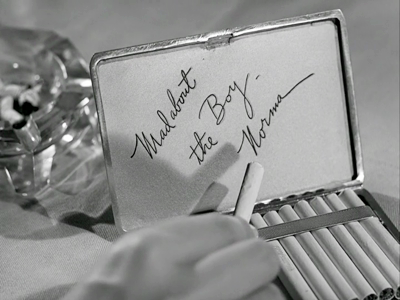 Mad about
the Boy -
Norma